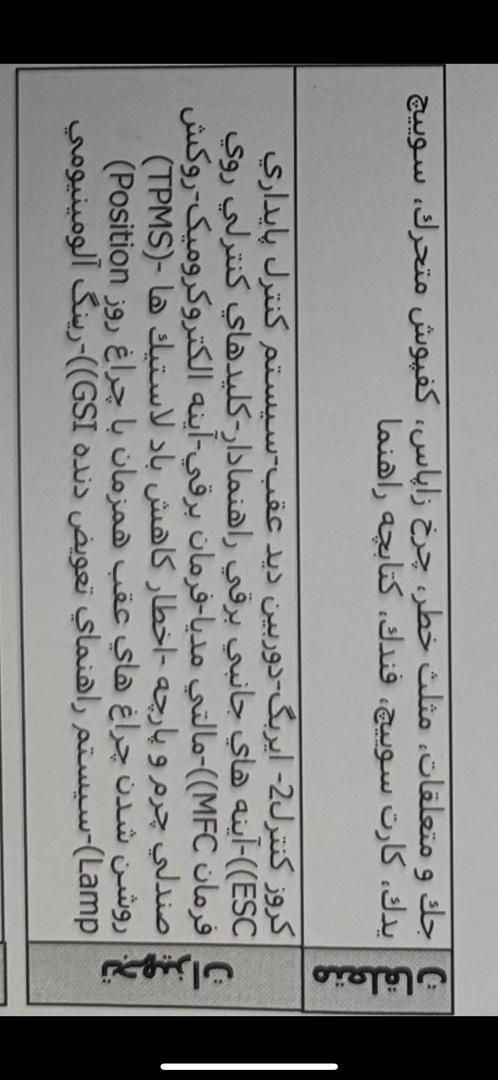 متعلقات
جك و متعلقات، مثلث خطر، چرخ زاپاس، كفپوش متحرك، سوييچ
يدك، كارت سوييچ، فندك، كتابچه راهنما
تجهيزات
كروز كنترل2- ايربگ-دوربين ديد عقب-سيستم كنترل پايداري
ESC))-آينه هاي جانبي برقي راهنمادار-كليدهاي كنترلي روي
فرمان MFC))-مالتي مديا-فرمان برقي-آينه الكتروكروميک-روكش
صندلي چرم و پارچه -اخطار كاهش باد لاستيك ها -(TPMS)
روشن شدن چراغ هاي عقب همزمان با چراغ روز Position)
Lamp)-سيستم راهنماي تعويض دنده GSI))-رينگ آلومينيومي